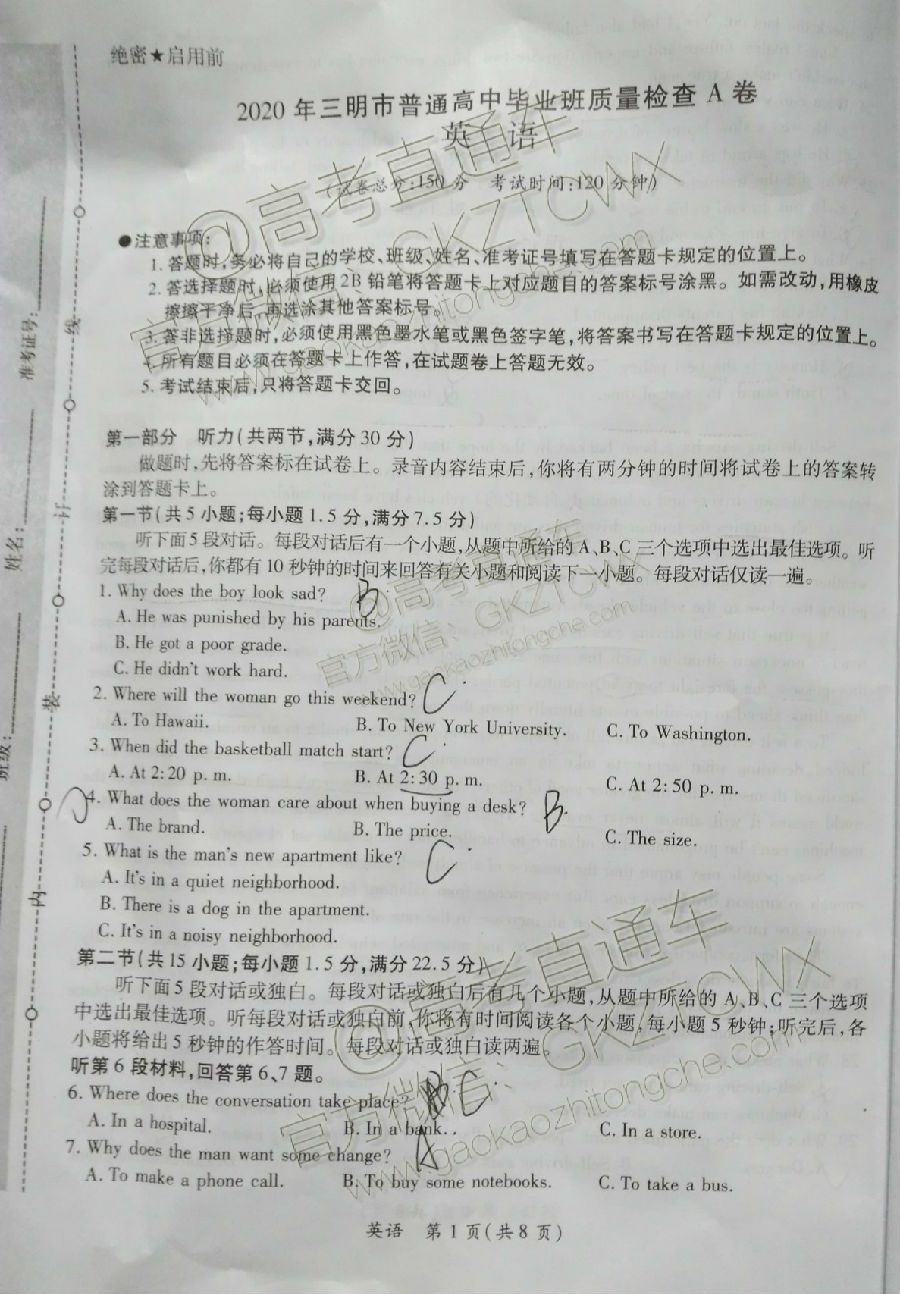 绝密★启用前
2020 年三明市普通高中毕业班质量检查 A 卷
英 语
(试卷总分:150 分 考试时间:120 分钟)
●注意事项:
1. 答题时,务必将自己的学校、班级、姓名、准考证号填写在答题卡规定的位置上。
2. 答选择题时,必须使用 2B 铅笔将答题卡上对应题目的答案标号涂黑。如需改动,用橡皮
擦擦干净后,再选涂其他答案标号。
3. 答非选择题时,必须使用黑色墨水笔或黑色签字笔,将答案书写在答题卡规定的位置上。
4. 所有题目必须在答题卡上作答,在试题卷上答题无效。
5. 考试结束后,只将答题卡交回。
第一部分 听力(共两节,满分 30 分)
做题时,先将答案标在试卷上。录音内容结束后,你将有两分钟的时间将试卷上的答案转
涂到答题卡上。
第一节(共 5 小题;每小题 1.5 分,满分 7.5 分)
听下面 5 段对话。每段对话后有一个小题,从题中所给的 A、B、C 三个选项中选出最佳选项。听
完每段对话后,你都有 10 秒钟的时间来回答有关小题和阅读下一小题。每段对话仅读一遍。
1. Why does the boy look sad? B
A. He was punished by his parents.
B. He got a poor grade.
C. He didn't work hard.
2. Where will the woman go this weekend? C
A. To Hawaii. B. To New York University. C. To Washington.
3. When did the basketball match start? C
A. At 2:20 p. m. B. At 2:30 p. m. C. At 2:50 p. m.
4. What does the woman care about when buying a desk? B
A. The brand. B. The price. C. The size.
5. What is the man's new apartment like? C
A. It's in a quiet neighborhood.
B. There is a dog in the apartment.
C. It's in a noisy neighborhood.
第二节(共 15 小题;每小题 1.5 分,满分 22.5 分)
听下面 5 段对话或独白。每段对话或独白后有几个小题,从题中所给的 A、B、C 三个选项
中选出最佳选项。听每段对话或独白前,你将有时间阅读各个小题,每小题 5 秒钟;听完后,各
小题将给出 5 秒钟的作答时间。每段对话或独白读两遍。
听第 6 段材料,回答第 6、7 题。
6. Where does the conversation take place? C
A. In a hospital. B. In a bank. . C. In a store.
7. Why does the man want some change? A
A. To make a phone call. B. To buy some notebooks. C. To take a bus.
英语 第 1 页(共 8 页)
准考证号:
姓名:
班级:
线
订
装
内
@高考直通车
官方微信: GKZTCWX
www.gaokaozhitongche.com
@高考直通车
官方微信: GKZTCWX
www.gaokaozhitongche.com
@高考直通车
官方微信: GKZTCWX
www.gaokaozhitongche.com